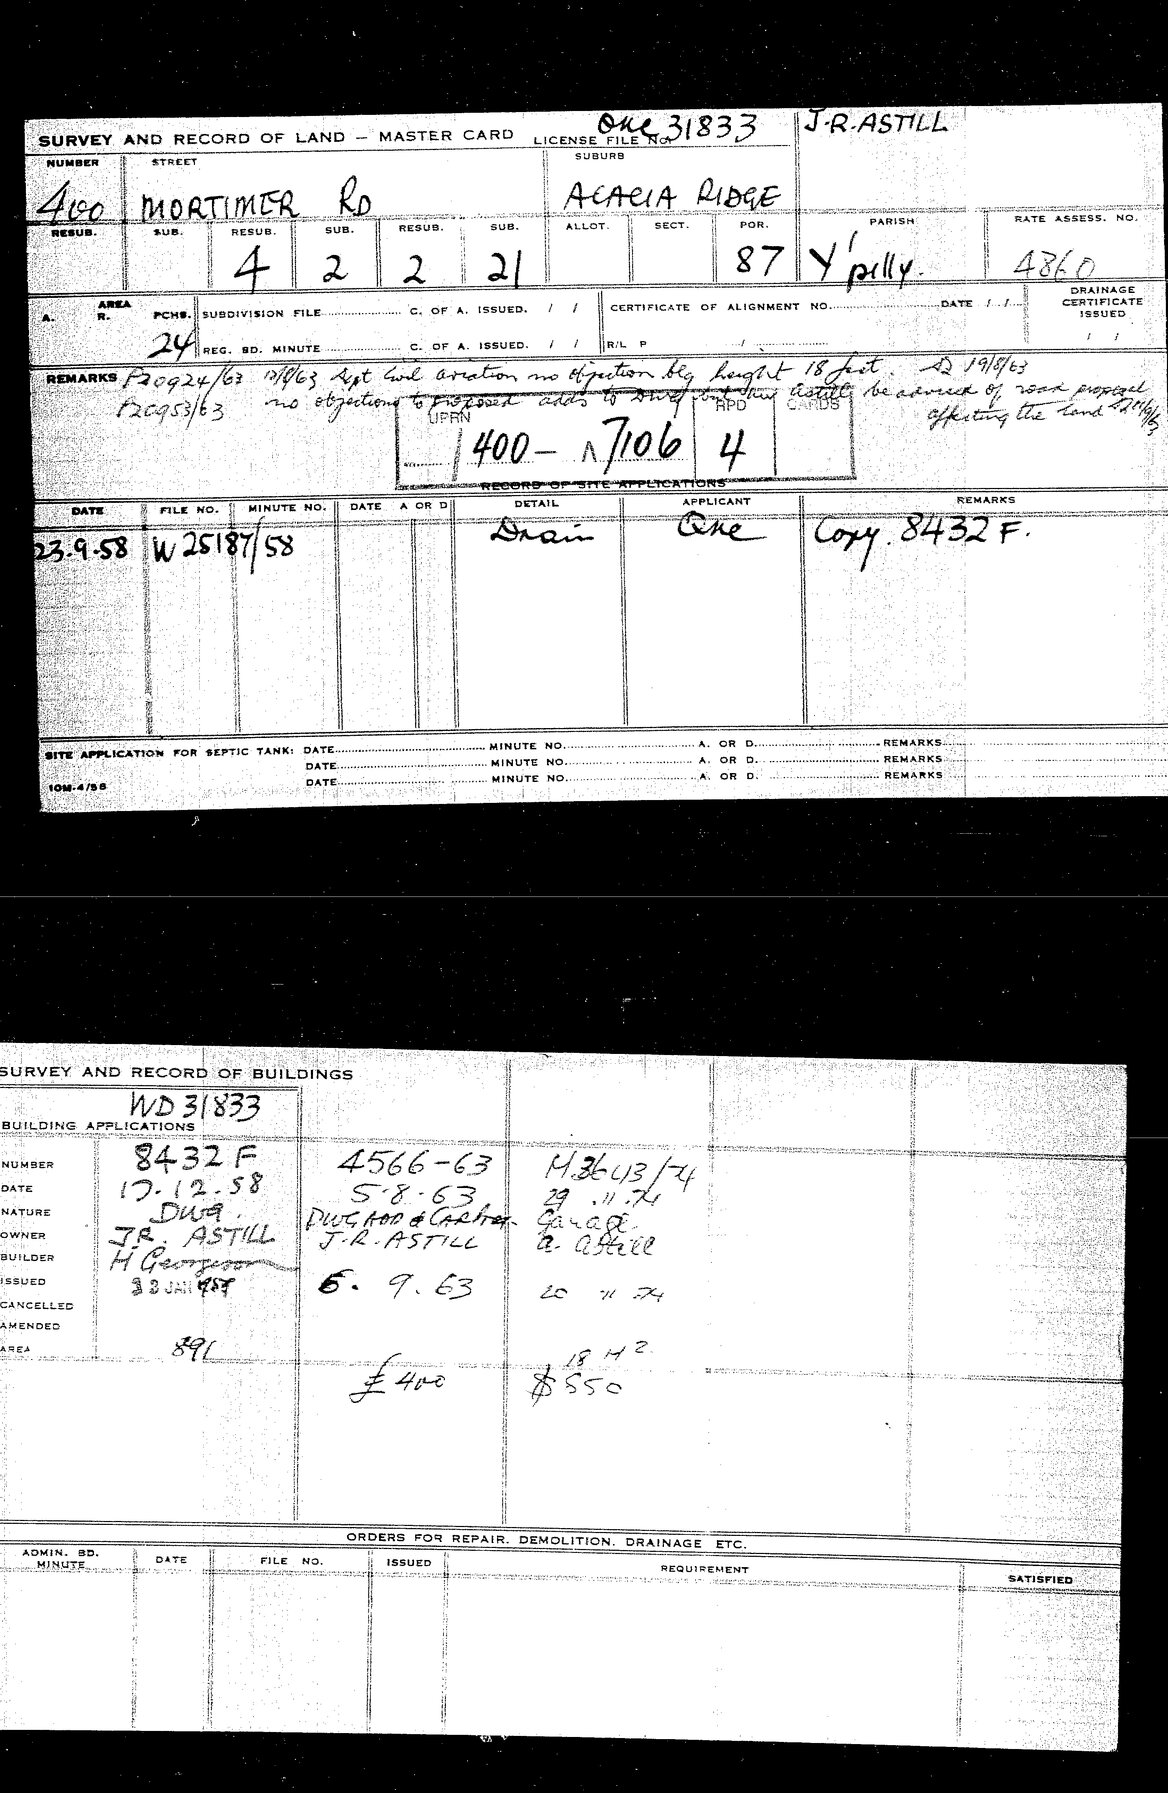 SURVEY AND RECORD OF LAND – MASTER CARD LICENSE FILE No. 31833 J.R. ASTILL
NUMBER STREET SUBURB
400 MORTIMER RD ACACIA RIDGE
RESUB. SUB. RESUB. SUB. RESUB. SUB. ALLOT. SECT. POR. PARISH RATE ASSESS. NO.
4 2 2 21 87 Y'pilly. 4860
A. AREA R. PCHS. SUBDIVISION FILE C. OF A. ISSUED. / / CERTIFICATE OF ALIGNMENT NO. DATE / / DRAINAGE CERTIFICATE ISSUED
24 REG. BD. MINUTE C. OF A. ISSUED. / / R/L P / / /
REMARKS P20924/63 12/8/63 Dept Civil aviation no objection blg height 18 feet. 19/8/63
P20953/63 no objections to proposed adds to Dwg but Astill be advised of road proposal
affecting the land
UPRN RPD CARDS
400 – 7106 4
RECORD OF SITE APPLICATIONS
DATE FILE NO. MINUTE NO. DATE A OR D DETAIL APPLICANT REMARKS
23.9.58 W 25187/58 Drain One Copy. 8432 F.
SITE APPLICATION FOR SEPTIC TANK: DATE MINUTE NO. A. OR D. REMARKS
DATE MINUTE NO. A. OR D. REMARKS
DATE MINUTE NO. A. OR D. REMARKS
10M-4/56
SURVEY AND RECORD OF BUILDINGS
WD 31833
BUILDING APPLICATIONS
NUMBER 8432 F 4566-63
DATE 17.12.58 5.8.63 29 .11 .74
NATURE Dwg. DWG ADD & Garage.
OWNER J.R. ASTILL J.R. ASTILL A. Astill
BUILDER H Georgeson
ISSUED 6. 9. 63 20 11 .74
CANCELLED
AMENDED
AREA 891 18 M2
£400 $550
ORDERS FOR REPAIR. DEMOLITION. DRAINAGE ETC.
ADMIN. BD. MINUTE DATE FILE NO. ISSUED REQUIREMENT SATISFIED